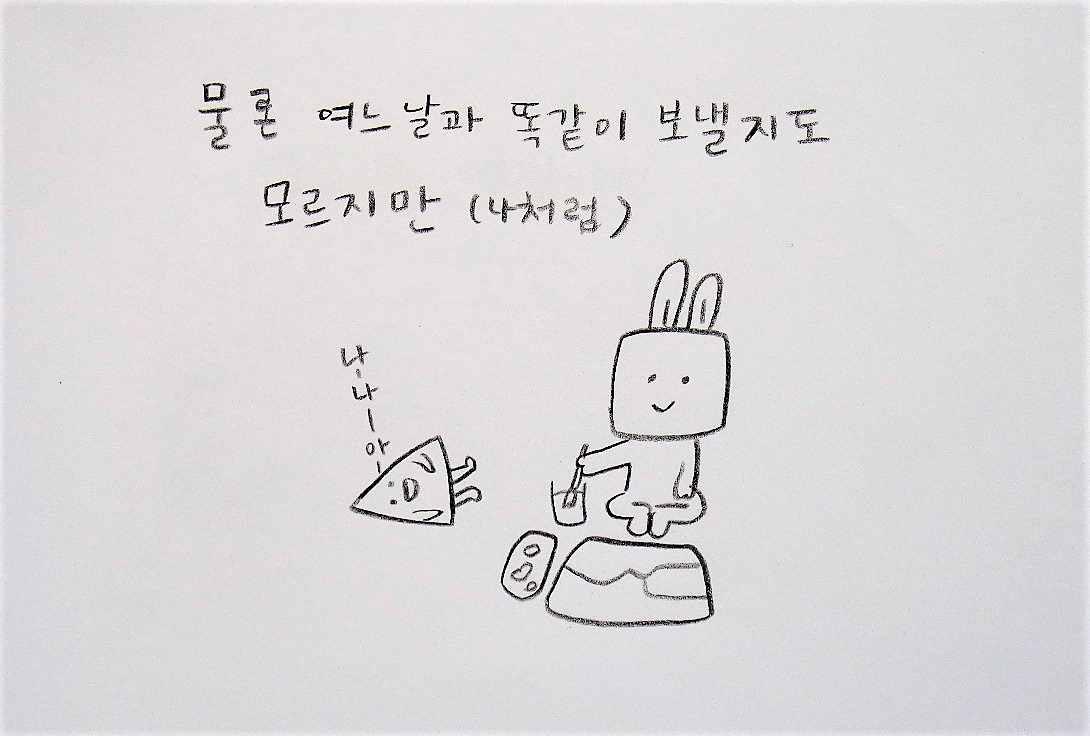 물론 여느날과 똑같이 보낼지도
모르지만 (나처럼)
나
나
ㅣ
아